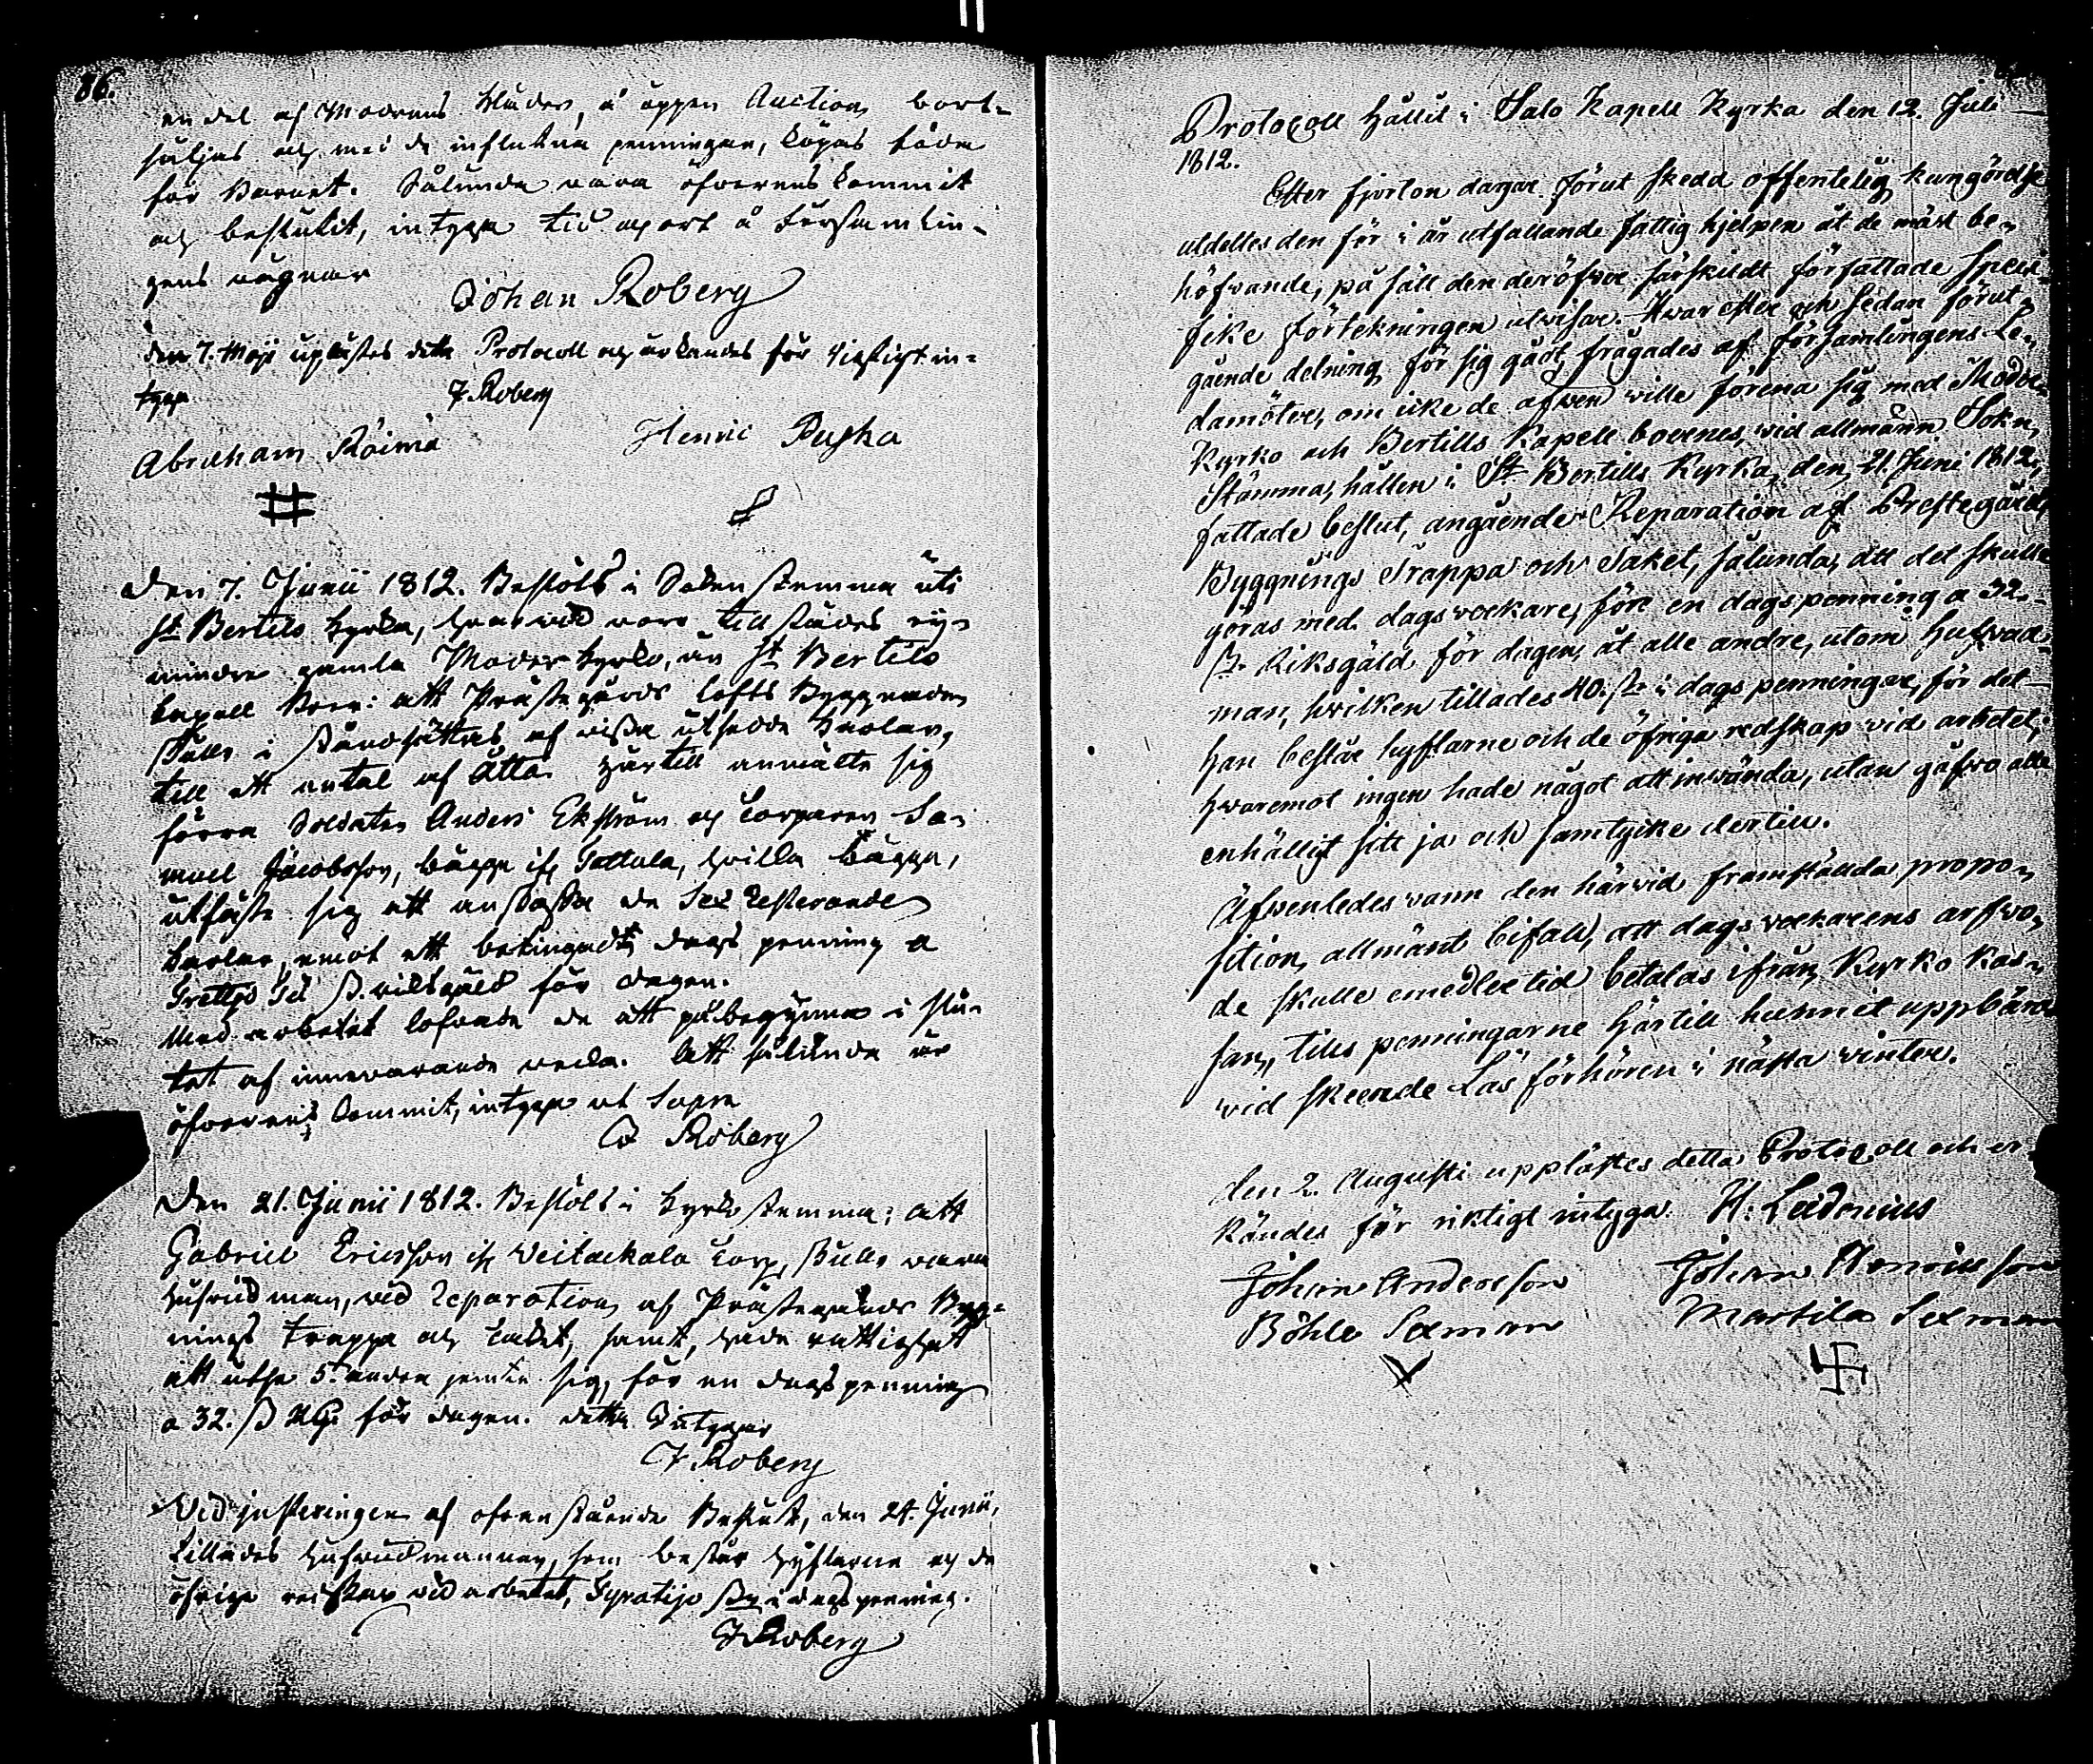 86.
en del af Modrens Kläder, å öppen Auction bort-
säljas och med de influtna penningar, köpas föda
för Barnet. Sålunda vara öfverens kommit
och beslutit, intyga till ort å Församlin-
gens vägnar
Johan Roberg
den 7. Maji uplästes detta Protocoll och erkändes för riktigt in-
tyga
J. Roberg
Abraham Henric Puska
Den 7. Junii 1812. Beslöts i Soknestemma uti
St. Bertils Kyrka, hvarvid voro tillstädes ey
mindre gamla Moderkyrko, än St. Bertils
Capell Boer: att Prästegårds lofts Byggnaden
skulle i ståndsättas af vissa utsedde Karlar,
till ett antal af Åtta. Härtill anmälte sig
förra Soldaten Anders Ekström och Torparen Sa-
muel Jacobsson, bägge ifrån Tattula, hvilka bägge,
utfäste sig att anskaffa de Sex resterande
Karlar, emot ett betingadt dags penning a
Trettio Två ß. riksgäld för dagen.
Med arbetet lofvade de att påbegynna i slu-
tet af innevarande vecka. Att sålunda är
öfverens kommit, intygar ut Supra
J Roberg
Den 21. Junii 1812. Beslöts i Kyrkostemma: att
Gabriel Ericsson ifrån Veitackala Torp, skulle vara
hufvudman, vid Reparation af Prästegårds Bygg-
nings Trappa och Taket, samt, hade rättighet
att utse 5. andra jemte sig, för en dagspenning
a 32. ß RG. för dagen. detta Intygar
J Roberg
Vid justeringen af ofvanstående Beslut, den 24. Junii,
tillades hufvudmannen, som består hyflarne och de
öfrige redskap vid arbetet, Fyratijo ß i dagspenning.
J Roberg
Protocoll hållit i Salo Kapell Kyrka den 12. Juli
1812.
Efter fjorton dagar förut skedd offentelig kungörelse
utdeltes den för i år utfallande fattig hjelpen åt de mäst be-
höfvande, på sätt den deröfver särskildt författade speci-
fike förtekningen utvisar. Hvarefter och sedan förut-
gående delning för sig gådt, frågades af församlingens Le-
damöter, om icke de äfven wille förena sig med Moder-
Kyrko och Bertills Kapell boernes, wid allmänn Sokn
Stämma, hållen i St. Bertills Kyrka, den 21. Juni 1812,
fattade beslut, angående Reparation af Prestegårds
Byggnings Trappa och Taket, sålunda, att det skulle
göras med dagsverkare, före en dagspenning a 32.
ß. Riksgäld för dagen, åt alle andre, utom Hufvud-
man, hvilken tillades 40. ß. i dags penningar, för det
han består hyflarne och de öfriga redskap vid arbetet;
hvaremot ingen hade något att invända, utan gåfvo alla
enhälligt sitt ja och samtycke dertill.
Äfvenledes vann den härvid framstälda propo-
sition, allmänt bifall, att dagsverkarens arfvo-
de skulle emedlertid betalas ifrån Kyrko Kas-
san, tills penningarne härtill hunnit uppbäras
vid skeende Läs förhören i nästa vinter.
Den 2. Augusti upplästes detta Protocoll och er-
kändes för riktigt intyga. H: Leidenius
Johan Andersson Johan Henricsson
Böhle Sexman Martila Sexman